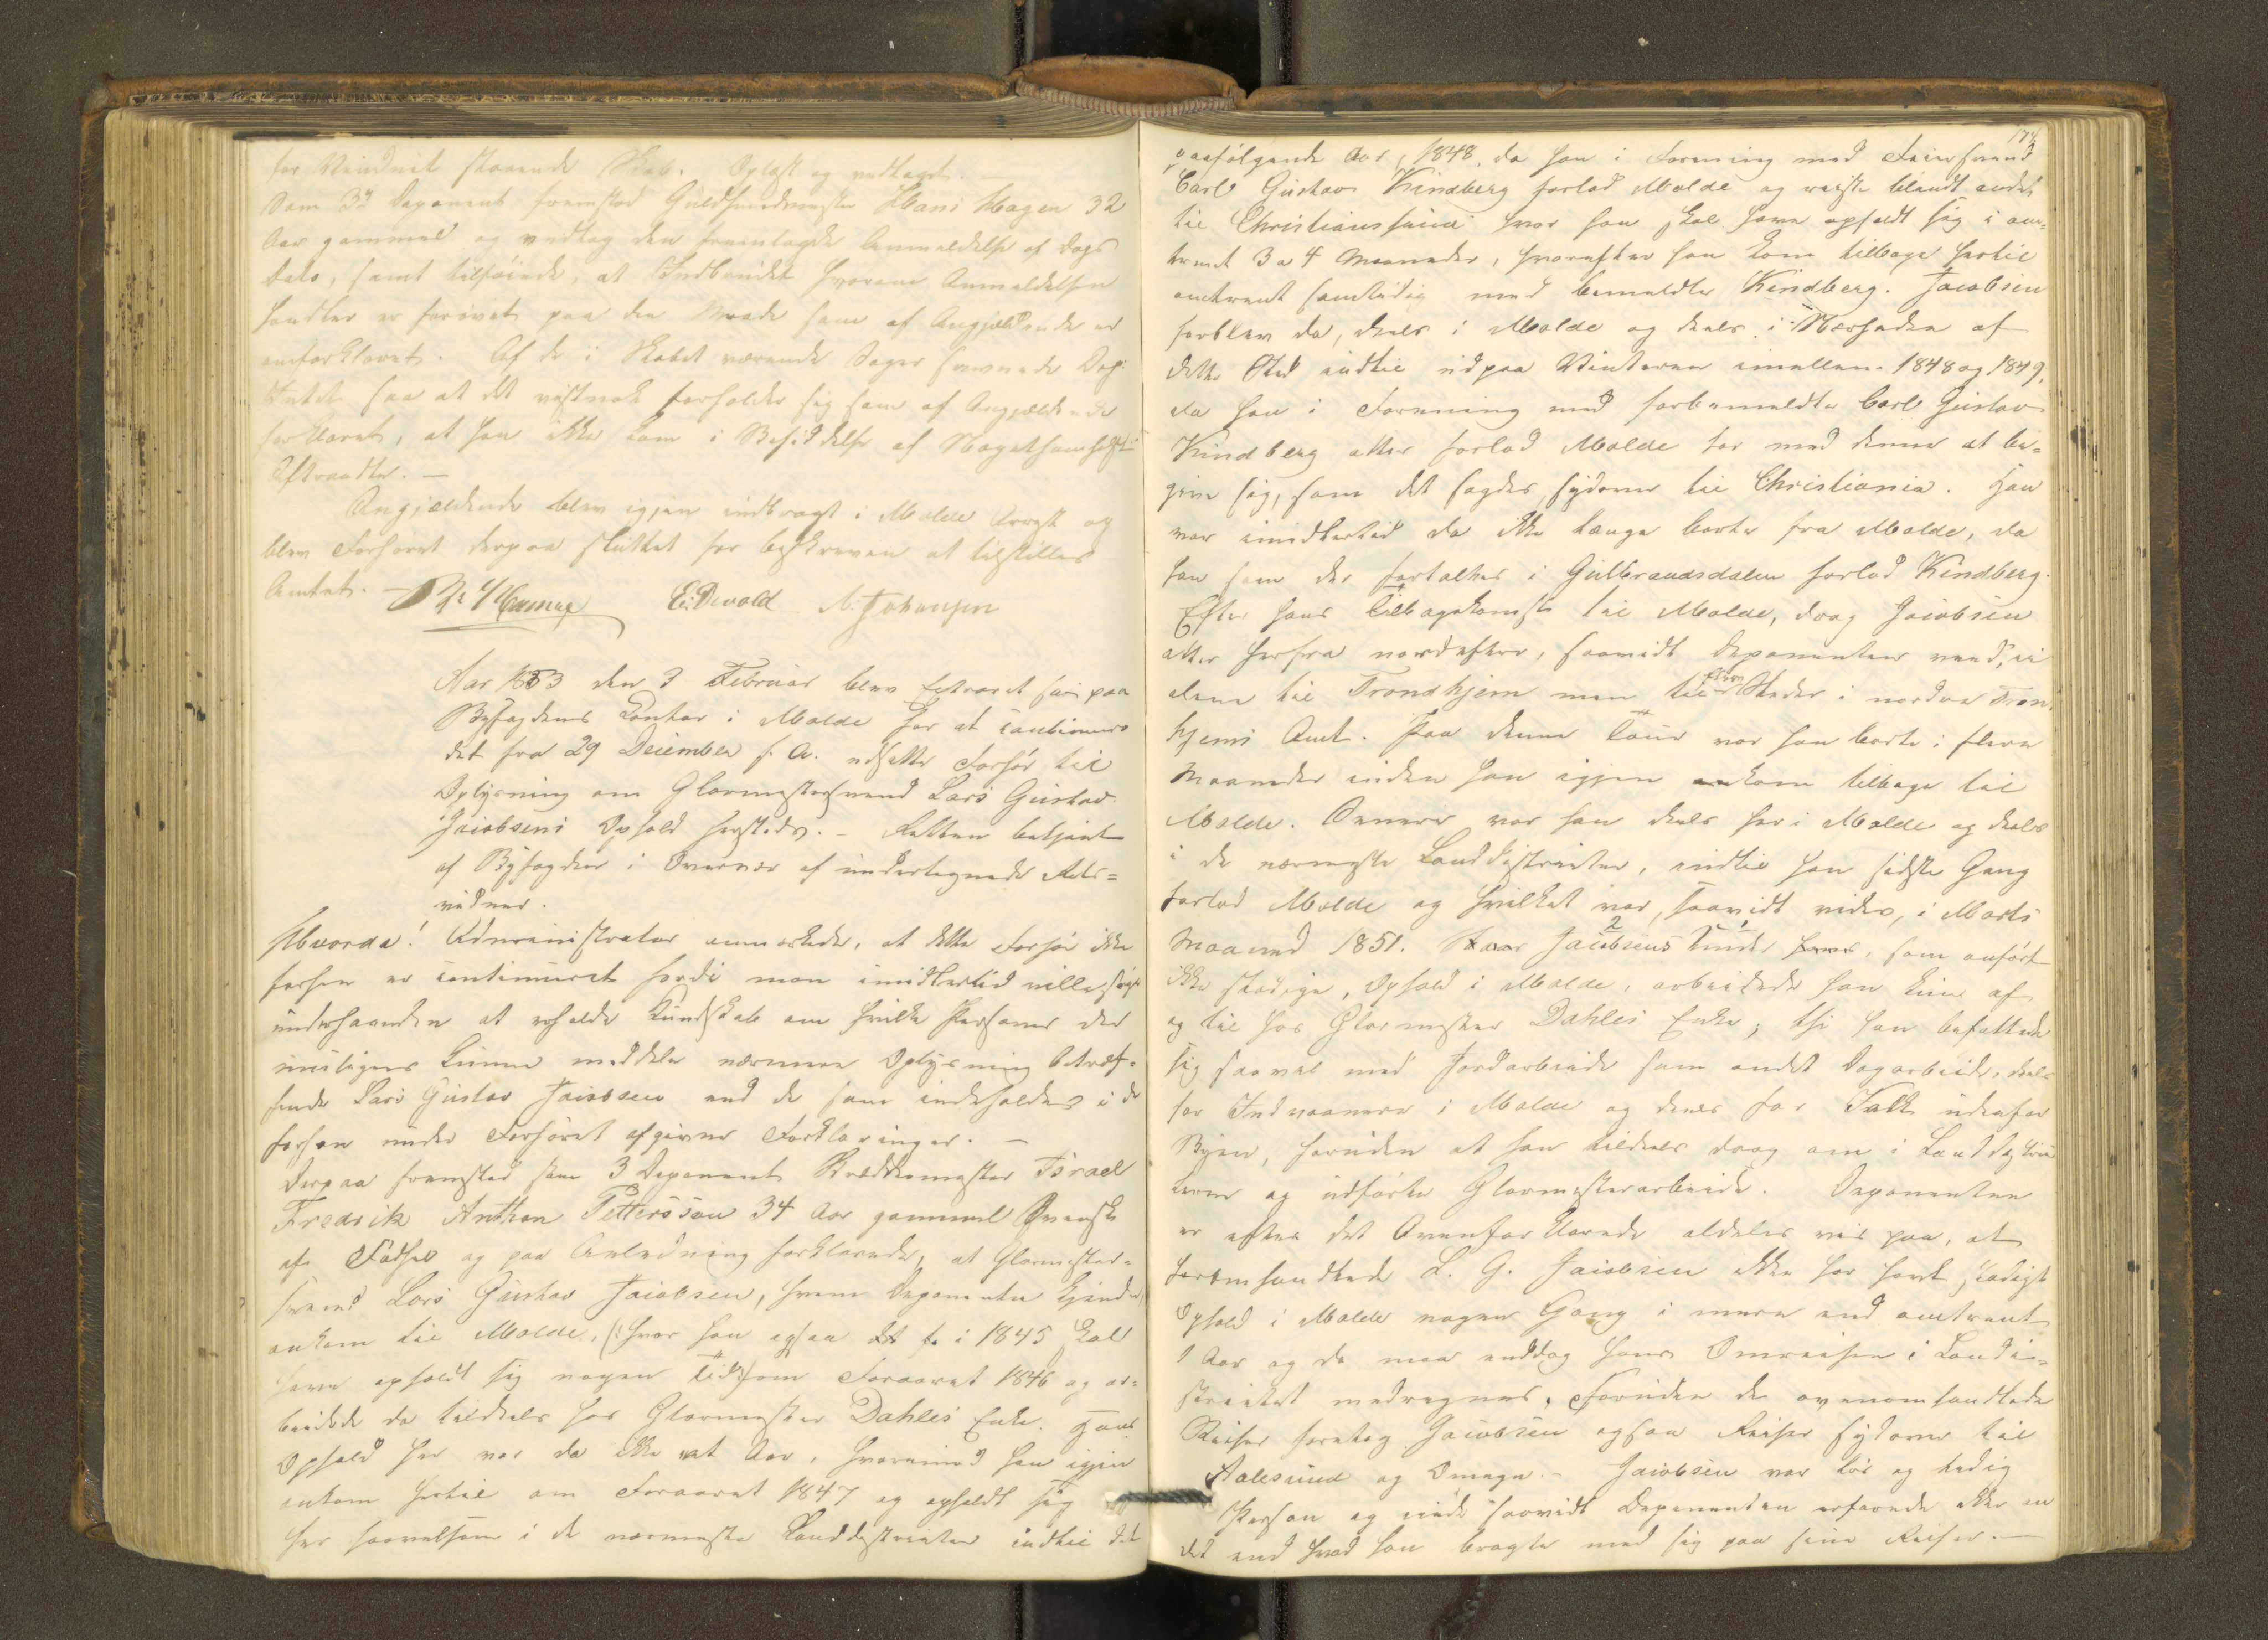 for Vinduet staaende Skab. Oplæst og vedtaget. —
Som 3die Deponent fremstod Guldsmedmester Hans Hagen 32
Aar gammel og vedtog den fremlagde Anmeldelse af Dags
Dato, samt tilføiede, at Indbruddet hvorom Anmeldelsen
handler er forøvet paa den Maade som af Angjældende er
omforklaret. Af de i Skabet værende Sager savnede Dep:
Intet saa at det vistnok forholder sig som af Angjældende
forklaret, at han ikke kom i Besiddelse af Nogetsomhelst
Aftraadte. —
Angjældende blev igjen indbragt i Molde Arrest og
blev Forhøret derpaa sluttet for beskreven at tilstilles
Amtet. —
E. Devold N. Johansen
Aar 1853 den 3 Februar blev Extraret sat paa
Byfogdens Contor i Molde for at continuere
det fra 29 December f. A. udsatte Forhør til
Oplysning om Glarmestersvend Lars Gustav
Jacobsens Ophold hersteds. — Retten betjent
af Byfogden i Overvær af undertegnede Rets=
vidner.
Hvorda! Administrator anmærkede, at dette Forhør ikke
forhen er continueret fordi man imidlertid vilde søge
underhaanden at erholde Kundskab om hvilke Personer der
muligens kunne meddele nærmere Oplysning betræf=
fende Lars Gustav Jacobsen end de som indeholdes i de
forhen under Forhøret afgivne Forklaringer. —
Derpaa fremstod som 3 Deponent Israel
Fredrik Anthon Pettersson 34 Aar gammel Svensk
af Fødsel og paa Anledning forklarede, at Glarmester=
svend Lars Gustav Jacobsen, hvem Deponenten kjender,
ankom til Molde, (hvor han ogsaa i 1845 skal
have opholdt sig nogen Tid) om Foraaret 1846 og ar=
beidede da tildeels hos Glarmester Dahles Enke. Hans
Ophold her var da ikke et Aar, hvorimod han igjen
ankom hertil om Foraaret 1847 og opholdt sig
her saavelsom i de nærmeste Landdistricter indtil det
paafølgende Aar, 1848, da han i Forening med
Carl Gustav Kindberg forlod Molde og reiste blandt andet
til Christianssund hvor han skal have opholdt sig i om=
trent 3 a 4 Maaneder, hvorefter han kom tilbage hertil
omtrent samtidig med bemeldte Kindberg. Jacobsen
forblev da, deels i Molde og deels i Nærheden af
dette Sted indtil ud paa Vinteren imellem 1848 og 1849,
da han i Forening med forbemeldte Carl Gustav
Kindberg atter forlod Molde for med denne at be=
give sig, som det sagdes, sydover til Christiania. Han
var imidlertid da ikke længe borte fra Molde, da
han som der fortaltes i Gulbrandsdalen forlod Kindberg.
Efter hans Tilbagekomst til Molde, drog Jacobsen
atter herfra nordefter, saavidt Deponenten veed, ei
alene til Trondhjem men til flere Steder i nordre Tron=
hjems Amt. Paa denne Tour var han borte i flere
Maaneder inden han igjen ankom tilbage til
Molde. Senere var han deels her i Molde og deels
i de nærmeste Landdistricter, indtil han sidste Gang
forlod Molde og hvilket var, saavidt vides, i Marts
Maaned 1851. Jacobsens under, som anført
ikke stadige, Ophold i Molde, arbeidede han kun af
og til hos Glarmester Dahles Enke, thi han befattede
sig saavel med Jordarbeide som andet Dagarbeide, deels
for Indvaanere i Molde og deels for Folk udenfor
Byen, foruden at han tildeels drog om i Landdistric
terne og udførte Glarmesterarbeide. Deponenten
er efter det Ovenforklarede aldeles vis paa, at
foromhandlede L. G. Jacobsen ikke har havt stadigt
Ophold i Molde nogen Gang i mere end omtrent
1 Aar og da maa enddog hans Omreisen i Landdi=
strictet medregnes. Foruden de ovenomhandlede
Reiser foretog Jacobsen ogsaa Reiser sydover til
Aalesund og Omegn. — Jacobsen var løs og ledig
Person og eiede saavidt Deponenten erfarede ikke an
det end hvad han bragte med sig paa sine Reiser. —